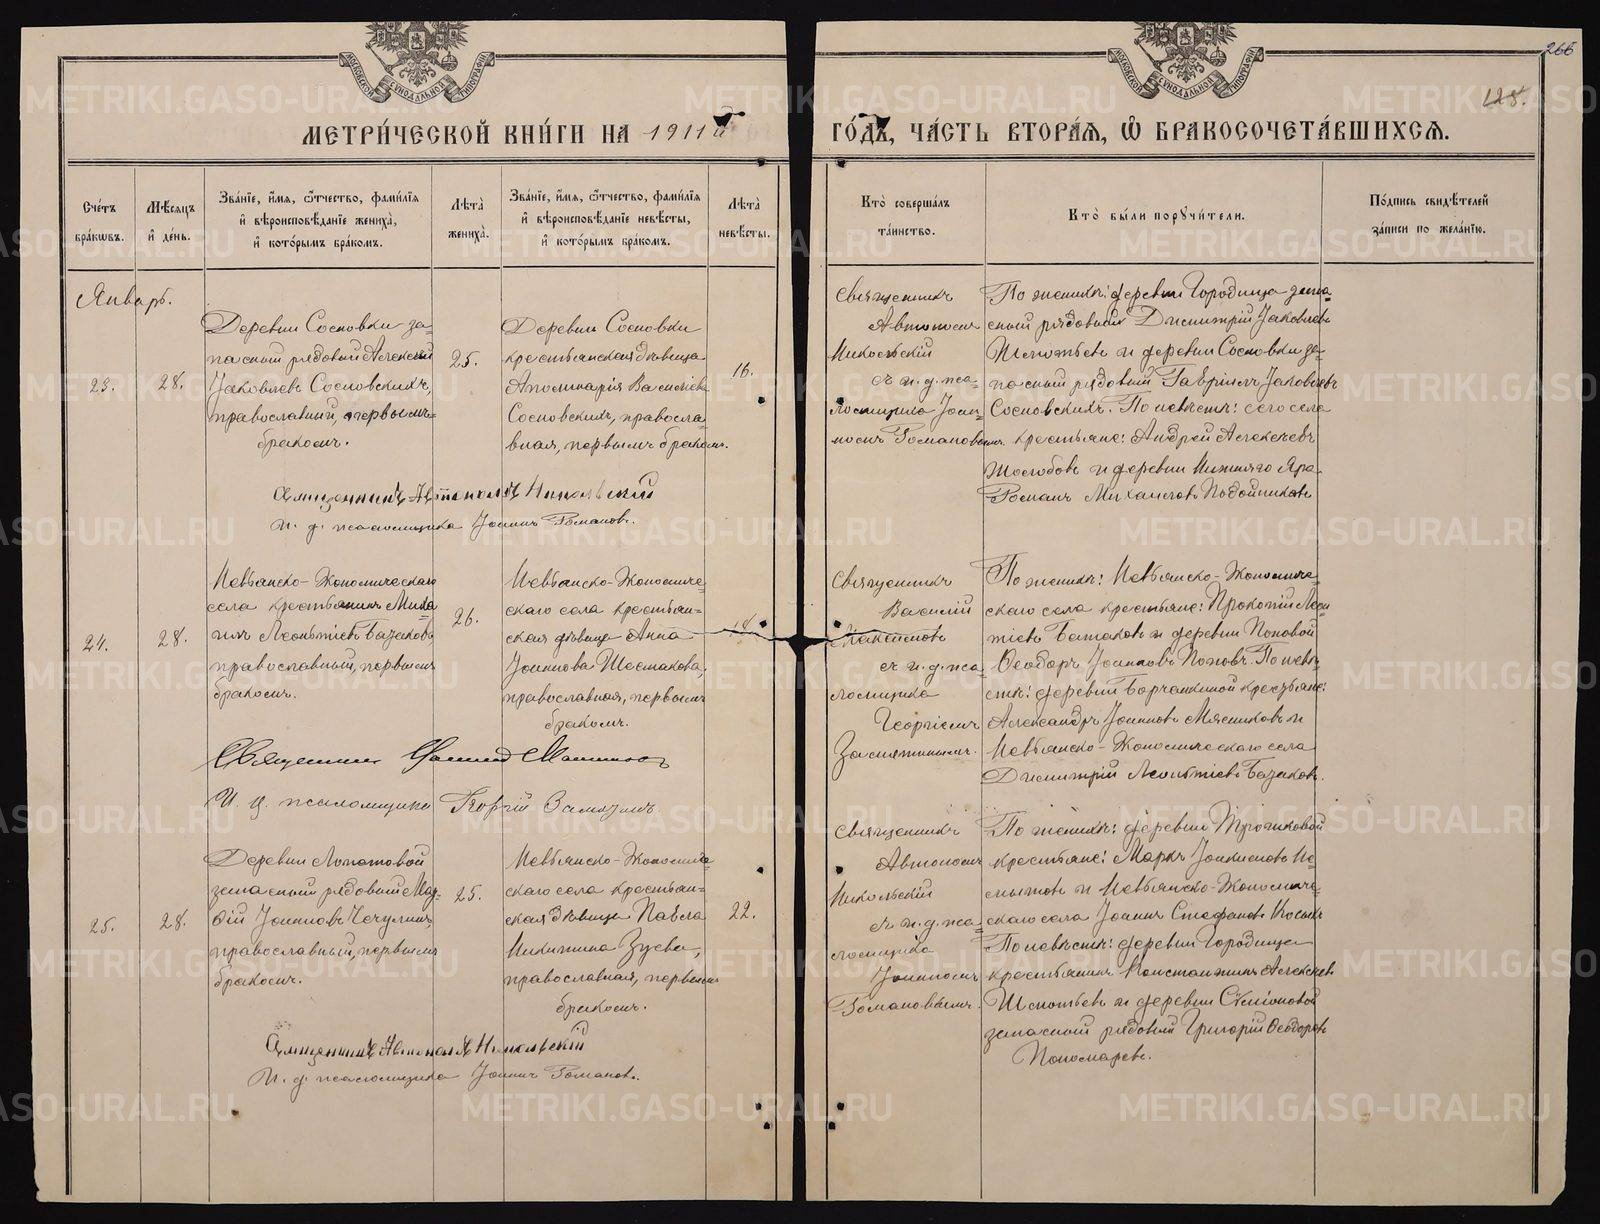 266
128.
МОСКОВСКОЙ СѴНОДАЛЬНОЙ ТИПОГРАФІИ
МОСКОВСКОЙ СѴНОДАЛЬНОЙ ТИПОГРАФІИ
МЕТРИ́ЧЕСКОЙ КНИ́ГИ НА 1911й ГО́ДЪ, ЧА́СТЬ ВТОРА́Я, Ѽ БРАКОСОЧЕТА́ВШИХСЯ.
Сче́тъ бра́кѡвъ.
Мѣ́сяцъ и́ де́нь.
Зва́нїе, и́мя, ѻ́тчество, фами́лїя и́ вѣроисповѣ́данїе жениха̀, и́ кото́рымъ бра́комъ.
Лѣта̀ жениха̀.
Зва́нїе, и́мя, ѻ́тчество, фами́лїя и́ вѣроисповѣ́данїе невѣ́сты, и́ кото́рымъ бра́комъ.
Лѣта̀ невѣ́сты.
Кто̀ соверша́лъ та́инство.
Кто̀ бы́ли поручи́тели.
По́дпись свидѣ́телей за́писи по жела́нїю.
Январь.
23.
28.
Деревни Сосновки за-
пасный рядовый Алексѣй
Іаковлевъ Сосновскихъ,
православный, первымъ
бракомъ.
25.
Деревни Сосновки
крестьянская дѣвица
Аполинарія Василіева
Сосновскихъ, правосла-
вная, первымъ бракомъ.
16.
Священникъ
Автономъ
Никольскій
съ и. д. пса-
ломщика Іоан-
номъ Романовымъ.
По женихѣ: деревни Городища запа-
сный рядовый Димитрій Іаковлевъ
Шмотьевъ и деревни Сосновки за-
пасный рядовый Гавріилъ Іаковлевъ
Сосновскихъ. По невѣстѣ: сего села
крестьяне: Андрей Алексѣевъ
Жолобовъ и деревни Нижняго Яра
Романъ Михаиловъ Подойниковъ
Священникъ Автономъ Никольскій
И. д. псаломщика Іоаннъ Романовъ.
24.
28.
Невьянско-Экономическаго
села крестьянинъ Миха
илъ Леонтіевъ Батаковъ,
православный, первымъ
бракомъ.
26.
Невьянско-Экономиче-
скаго села крестьян-
ская дѣвица Анна
Іоаннова Шестакова,
православная, первымъ
бракомъ.
18.
Священникъ
Василій
съ и. д. пса-
ломщика
Георгіемъ
Замятинымъ.
По женихѣ: Невьянско-Экономиче-
скаго села крестьяне: Прокопій Леон
тіевъ Батаковъ и деревни Поповой
Ѳеодоръ Іоанновъ Поповъ. По невѣ-
стѣ: деревни Борчаниной крестьяне:
Александръ Іоанновъ Мясниковъ и
Невьянско-Экономическаго села
Димитрій Леонтіевъ Батаковъ.
Священникъ
И. д. псаломщика Георгій Замятинъ
25.
28.
Деревни Лопатовой
запасный рядовый Мар-
дій Іоанновъ Чечулинъ,
православный, первымъ
бракомъ.
25.
Невьянско-Экономиче
скаго села крестьян-
ская дѣвица Павла
Никитина Зуева,
православная, первымъ
бракомъ.
22.
Священникъ
Автономъ
Никольскій
съ и. д. пса-
ломщика
Іоанномъ
Романовымъ.
По женихѣ: деревни Трошковой
крестьяне: Маркъ Іоакимовъ Не-
мытовъ и Невьянско-Экономиче-
скаго села Іоаннъ Стефановъ Косыхъ
По невѣстѣ: деревни Городища
крестьянинъ Константинъ Алексѣевъ
Шмотьевъ и деревни
запасный рядовый Григорій Ѳеодоровъ
Пономаревъ.
Священникъ Автономъ Никольскій
И. д. псаломщика Іоаннъ Романовъ.
METRIKI.GASO-URAL.RU